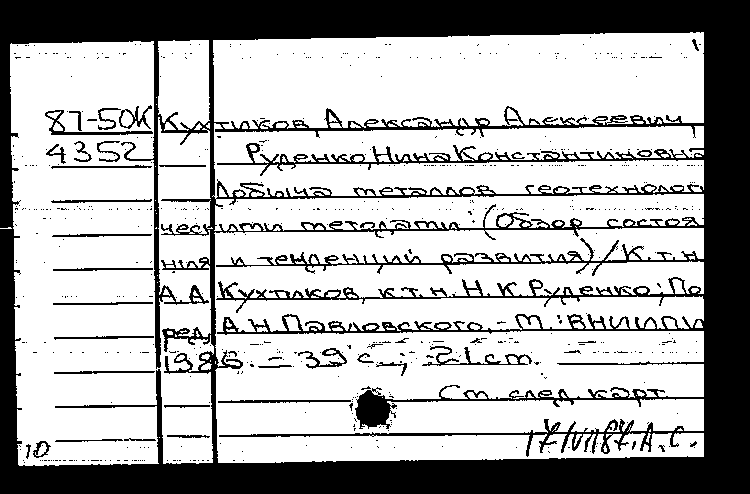 87-50К Кухтиков, Александр Алексеевич,
4352 Руденко, Нина Константиновна
Добыча металлов геотехнологи
ческими методами: (Обзор состоя
ния и тенденций развития) / К.т.н.
А.А. Кухтиков, к.т.н. Н.К. Руденко; По
ред. А.Н. Павловского. – М.: ВНИИПИ
1986. – 39 с.; 21 см.
См. след. карт
10 17/VII87.А.С.